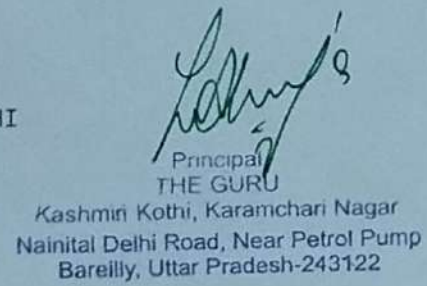 Principal
THE GURU
Kashmiri Kothi, Karamchari Nagar
Nainital Delhi Road, Near Petrol Pump
Bareilly, Uttar Pradesh-243122